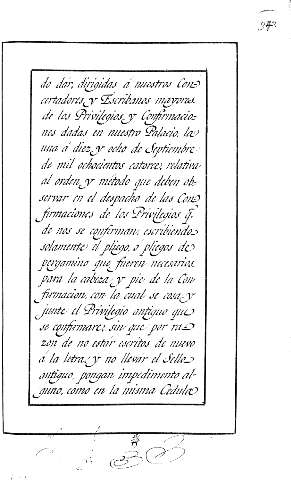 do dar, dirigidas á nuestros Con
certadores, y Escribanos mayores
de los Privilegios, y Confirmacio
nes dadas en nuestro Palacio, la
una á diez y ocho de Septiembre
de mil ochocientos catorce, relativa
al orden, y método que deben ob
servar en el despacho de las Con
firmaciones de los Privilegios q.
de nos se confirman, escribiendo
solamente el pliego, o pliegos de
pergamino que fueren necesarios
para la cabeza, y pie de la Con
firmacion, con lo cual se cosa, y
junte el Privilegio antiguo que
se confirmare; sin que por ra
zon de no estar escritos de nuevo
á la letra, y no llevar el Sello
antiguo, pongan impedimento al
guno, como en la misma Cedula